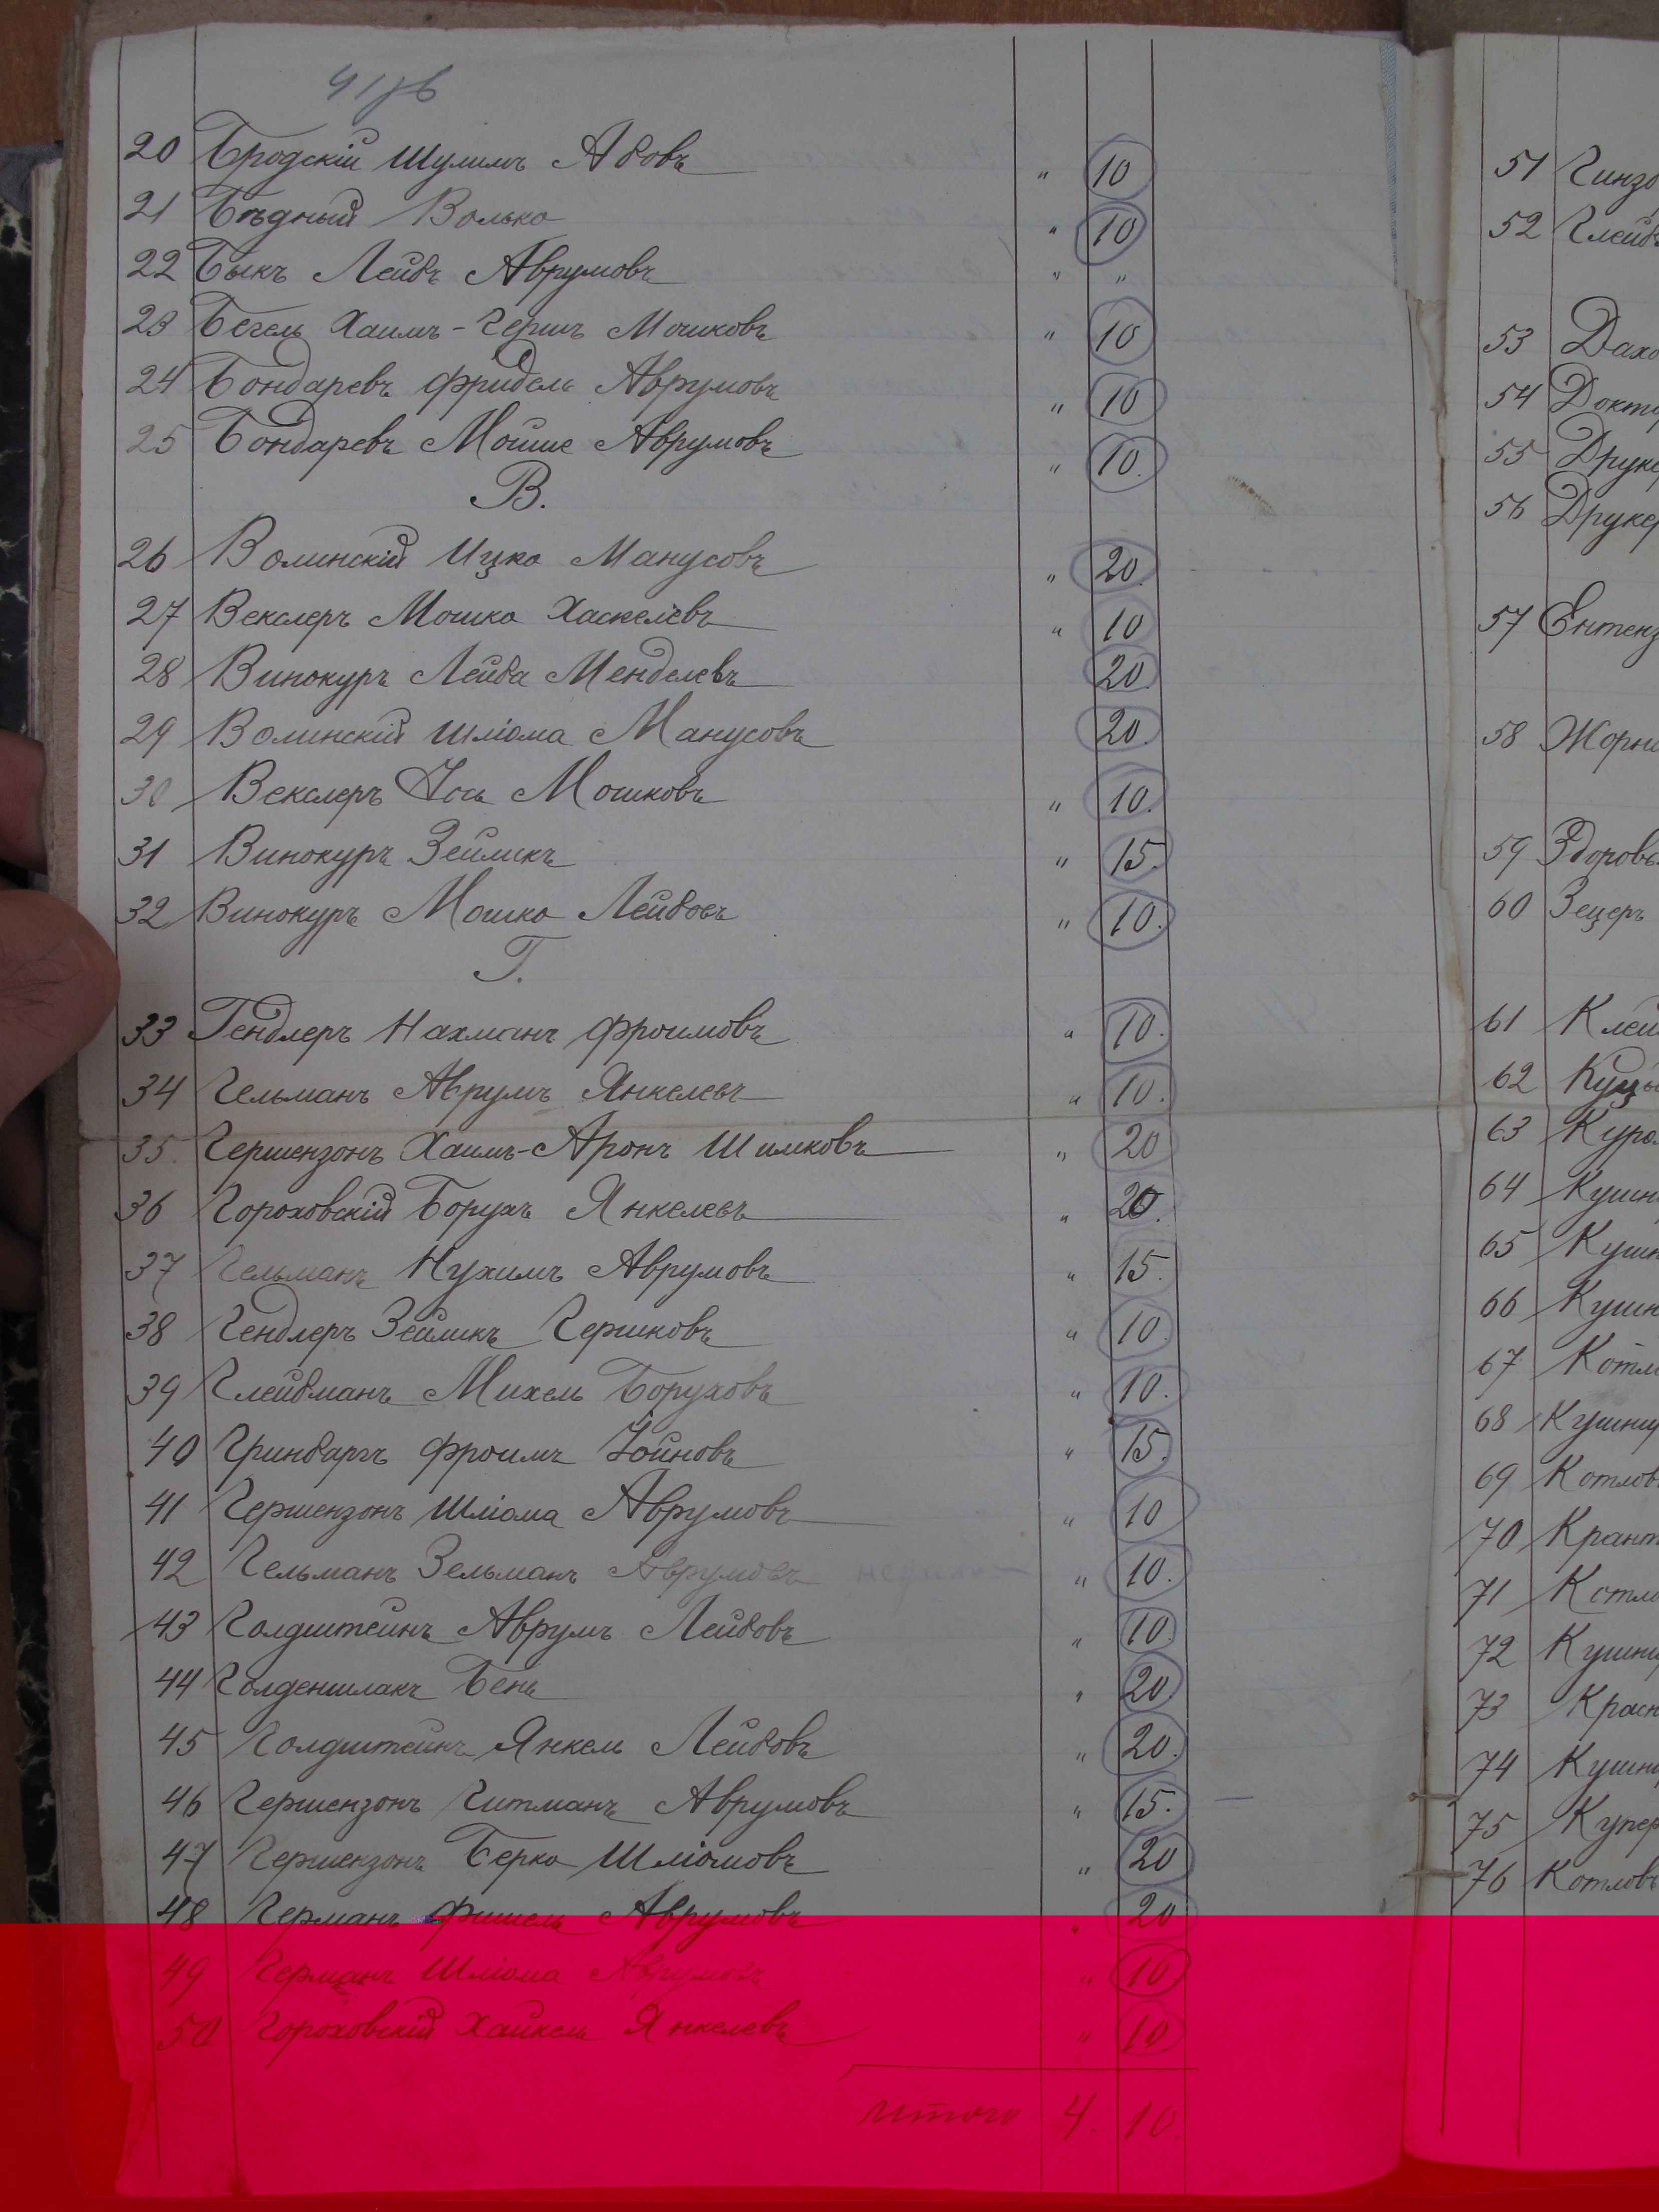 20 Бродскій Шулимъ Абовъ " 10
21 Бѣдный Волько " 10
22 Быкъ Лейбъ Аврумовъ " "
23 Бегель Хаимъ-Гершъ Мошковъ " 10
24 Бондаревъ Фридель Аврумовъ " 10
25 Бондаревъ Мойше Аврумовъ " 10.
В.
26 Волинскій Ицко Манусовъ " 20.
27 Векслеръ Мошко Хаскелевъ " 10
28 Винокуръ Лейба Менделевъ 20.
29 Волинскій Шліома Манусовъ 20.
30 Векслеръ Іось Мошковъ " 10.
31 Винокуръ Зейликъ " 15.
32 Винокуръ Мошко Лейбовъ " 10.
Г.
33 Гендлеръ Нахманъ Фроимовъ " 10.
34 Гельманъ Аврумъ Янкелевъ " 10.
35. Гершензонъ Хаимъ-Аронъ Шимковъ " 20
36 Гороховскій Борухъ Янкелевъ " 20.
37 Гельманъ Нухимъ Аврумовъ " 15.
38 Гендлеръ Зейликъ Гершковъ " 10.
39 Глейбманъ Михель Боруховъ " 10.
40 Гринбаргъ Фроимъ Іойновъ " 15.
41 Гершензонъ Шліома Аврумовъ " 10
42 Гельманъ Зельманъ Аврумовъ " 10.
43 Голдштейнъ Аврумъ Лейбовъ " 10.
44 Голденшлакъ Бень " 20.
45 Голдштейнъ Янкель Лейбовъ " 20.
46 Гершензонъ Гитманъ Аврумовъ " 15. —
47 Гершензонъ Берко Шліомовъ " 20
48 Германъ Фишель Аврумовъ " 20
49 Германъ Шліома Аврумовъ " 10.
50 Гороховскій Хайкель Янкелевъ " 10.
итого 4. 10.
51
52
53
54
55
56
57
58
59
60 Зецеръ
61
62
63
64
65
66
67
68
69
70
71
72
73
74
75
76